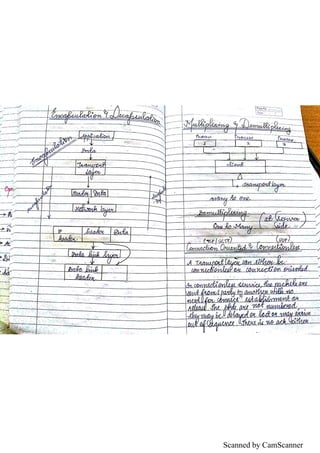 Encapsulation & Decapsulation
Application
Data
Transport
layer
Header Data
Network layer
IP
header
header Data
Data link layer
Data link
header
Encapsulation
Multiplexing & Demultiplexing
Process Process Process
1 2 3
Transport layer
many to one.
Demultiplexing (at Server
One to Many side
(UDP)
Connection Oriented & Connectionless
A Transport layer can either be
connectionless or connection oriented
In connectionless service, the packets are
sent from party to another with no
need for connecn establishment or
release. The pkts are not numbered,
they may be delayed or lost or may arrive
out of sequence. There is no ack either.
Scanned by CamScanner